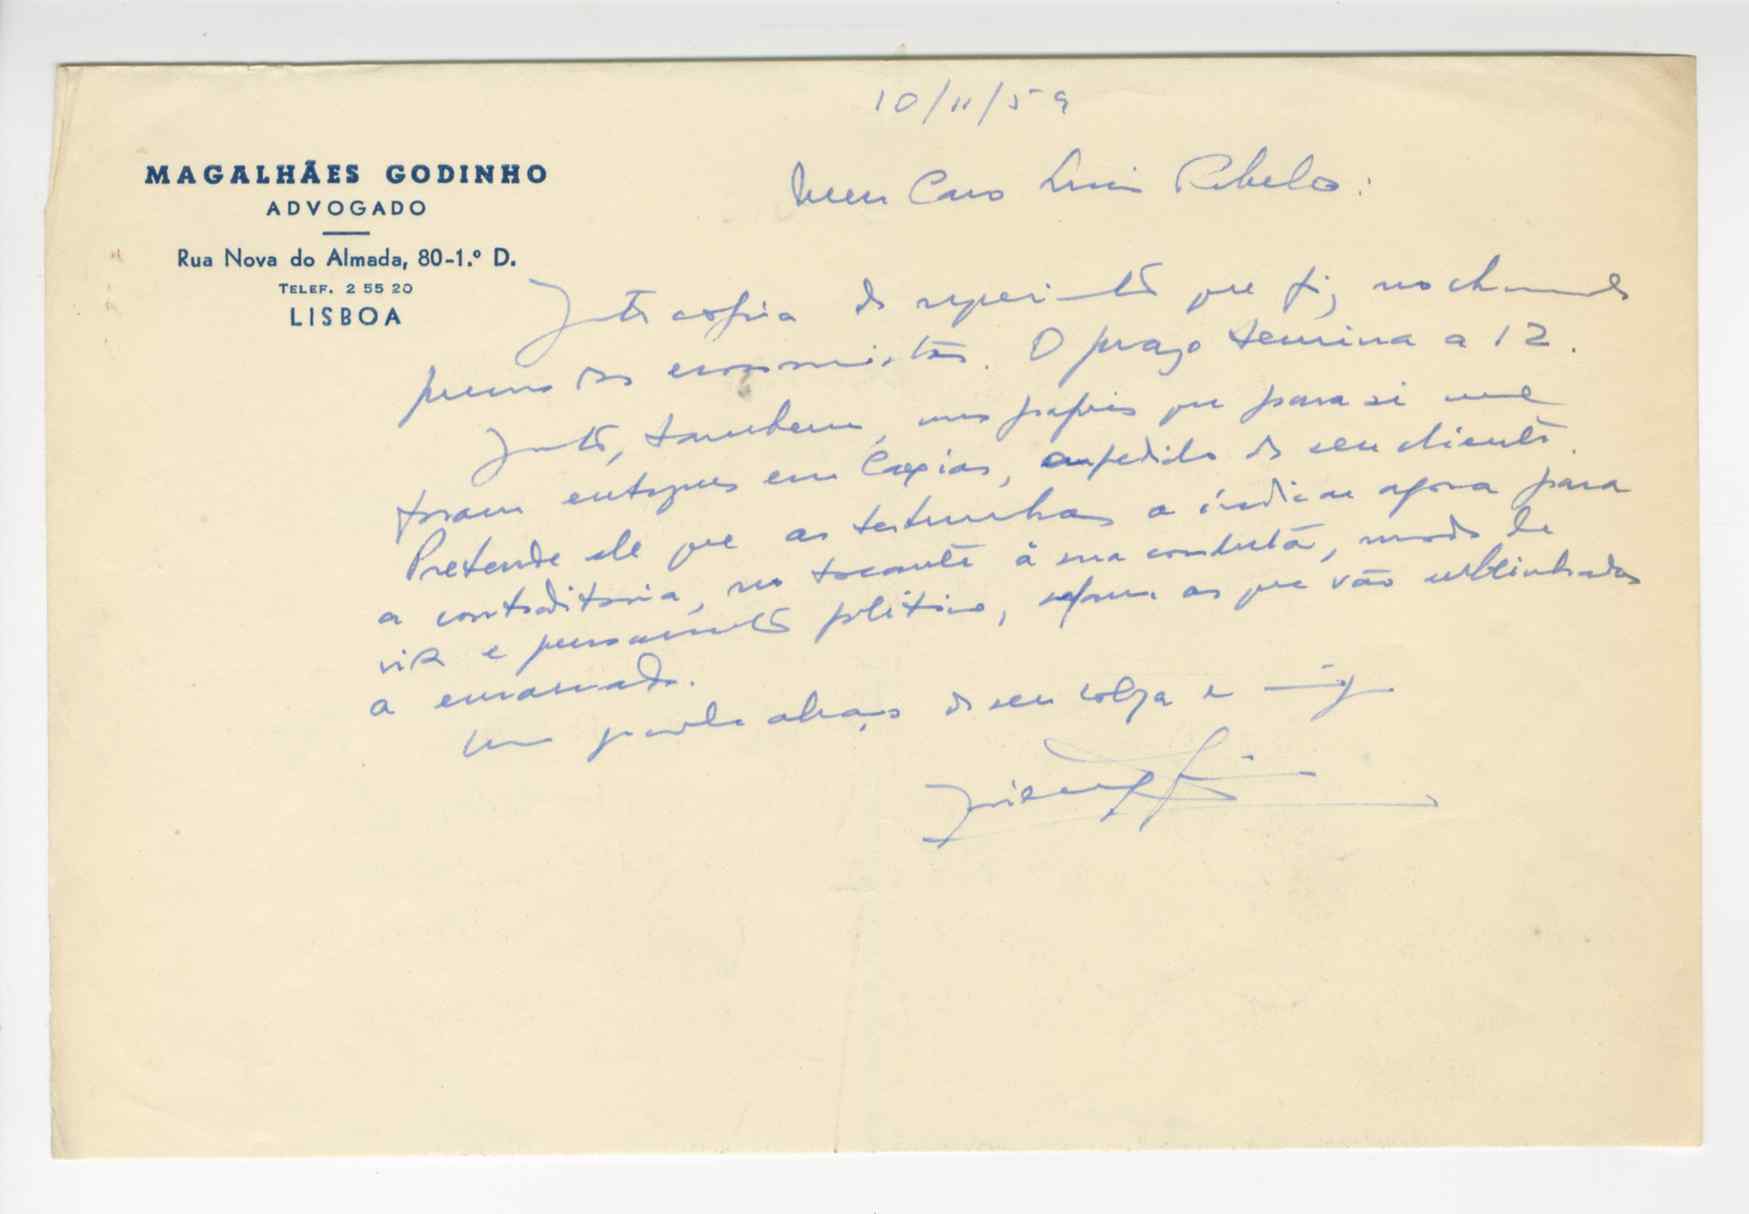 10/11/59
MAGALHÃES GODINHO
ADVOGADO
Rua Nova do Almada, 80-1.º D.
TELEF. 2 55 20
LISBOA
Meu Caro Luis Rebelo:
Junto copia do requerimento que fiz no chamado
processo dos economistas. O prazo termina a 12.
Junto, tambem, uns papeis que para si me
foram entregues em Caxias, a pedido do seu cliente.
Pretende ele que as testemunhas a indicar agora para
a contraditoria, no tocante á sua conduta, modo de
vida e pensamento politico, sejam as que vão sublinhadas
a encarnado.
Um grande abraço do seu colega e amigo